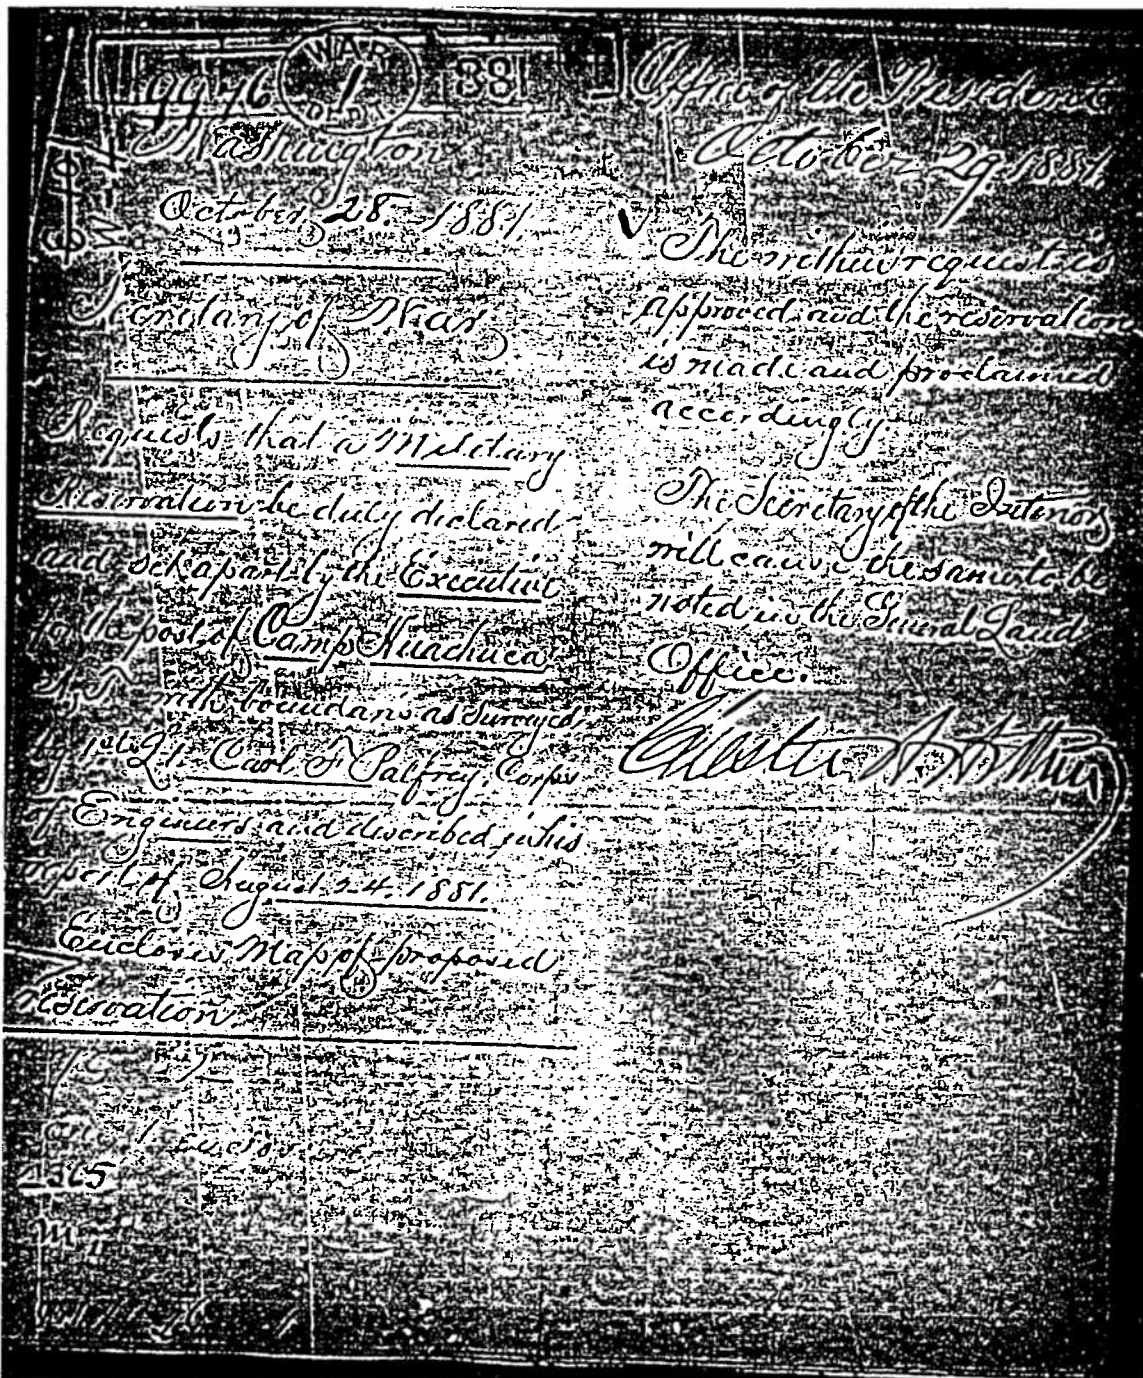 WAR
1881
Washington
October, 28. 1881.
Secretary of War
Requests that a Military
Reservation be duly declared
and set apart by the Executive
for the post of Camp Huachuca
with boundaries as Surveyed
by 1st Lt. Carl F. Palfrey, Corps
of Engineers and described in his
report of August 24. 1881.
Encloses Map of proposed
reservation.
2365
Office of the President
October 29 1881
The within request is
approved and the reservation
is made and proclaimed
accordingly.
The Secretary of the Interior
will cause the same to be
noted in the General Land
Office.
Chester A Arthur